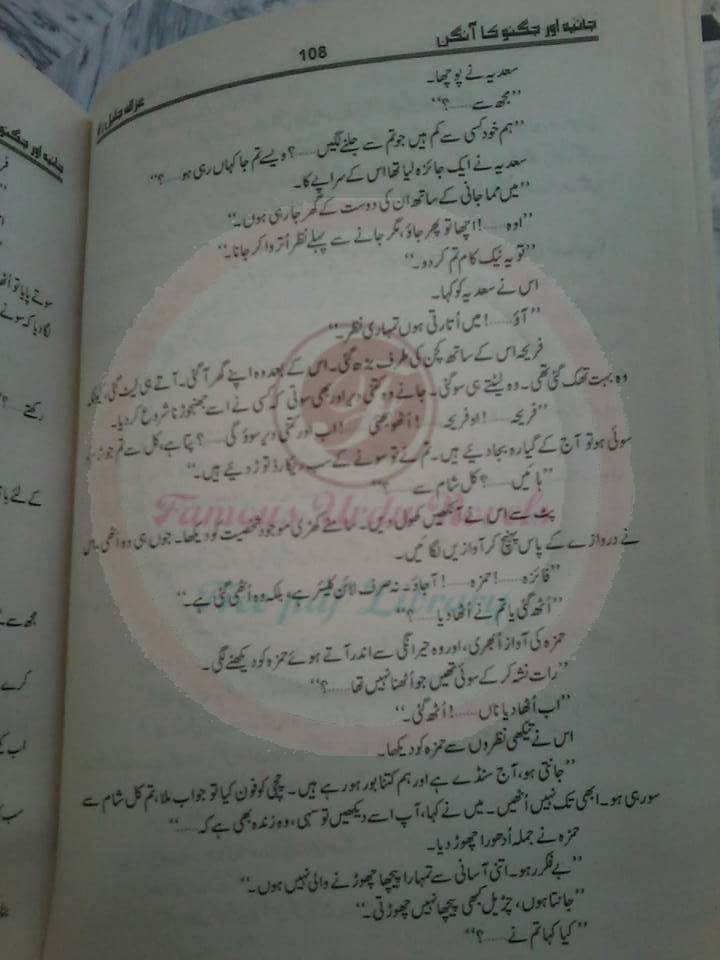 جانیہ اور جگنو کا آنگن
108
غزالہ جلیل راؤ
سعدیہ نے پوچھا۔
’’مجھ سے ......؟‘‘
’’ہم خود کسی سے کم ہیں جو تم سے جلنے لگیں ......؟ ویسے تم جا کہاں رہی ہو ......؟‘‘
سعدیہ نے ایک جائزہ لیا تھا اس کے سراپے کا۔
’’میں مما جانی کے ساتھ ان کی دوست کے گھر جا رہی ہوں۔‘‘
’’اوہ ......! اچھا تو پھر جاؤ، مگر جانے سے پہلے نظر اُتروا کر جانا۔‘‘
’’تو یہ نیک کام تم کر دو۔‘‘
اس نے سعدیہ کو کہا۔
’’آؤ ......! میں اُتارتی ہوں تمہاری نظر۔‘‘
فریحہ اس کے ساتھ کچن کی طرف بڑھ گئی۔ اس کے بعد وہ اپنے گھر آ گئی۔ آتے ہی لیٹ گئی، کیونکہ
وہ بہت تھک گئی تھی۔ وہ لیٹتے ہی سو گئی۔ جانے وہ کتنی دیر اور بھی سوتی کہ کسی نے اسے جھنجوڑنا شروع کر دیا۔
’’فریحہ ......! او فریحہ ......! اُٹھو بھئی ......! اب اور کتنی دیر سوؤ گی ......؟ پتا ہے، کل سے تم جو
سوئی ہو تو آج کے گیارہ بجا دیئے ہیں۔ تم نے تو سونے کے سب ریکارڈ توڑ دیئے ہیں۔‘‘
’’ہائیں ......؟ کل شام سے ......؟‘‘
پٹ سے اس نے آنکھیں کھول دیں۔ سامنے کھڑی موجود شخصیت کو دیکھا۔ جوں ہی وہ اُٹھی، اس
نے دروازے کے پاس پہنچ کر آوازیں لگائیں۔
’’فائزہ ......! حمزہ ......! آ جاؤ۔ نہ صرف لائن کلیئر ہے، بلکہ وہ اُٹھ بھی گئی ہے۔‘‘
’’اُٹھ گئی یا تم نے اُٹھا دیا ......؟‘‘
حمزہ کی آواز اُبھری، اور وہ حیرانگی سے اندر آتے ہوئے حمزہ کو دیکھنے لگی۔
’’رات نشہ کر کے سوئی تھیں جو اُٹھنا نہیں تھا ......؟‘‘
’’اب اُٹھا دیا ناں ......! اُٹھ گئی۔‘‘
اس نے تیکھی نظروں سے حمزہ کو دیکھا۔
’’جانتی ہو، آج سنڈے ہے اور ہم کتنا بور ہو رہے ہیں۔ چچی کو فون کیا تو جواب ملا، تم کل شام سے
سو رہی ہو۔ ابھی تک نہیں اُٹھیں۔ میں نے کہا، آپ اسے دیکھیں تو سہی، وہ زندہ بھی ہے کہ ......‘‘
حمزہ نے جملہ اُدھورا چھوڑ دیا۔
’’بے فکر رہو۔ اتنی آسانی سے تمہارا پیچھا چھوڑنے والی نہیں ہوں۔‘‘
’’جانتا ہوں، چڑیل کبھی پیچھا نہیں چھوڑتی۔‘‘
’’کیا کہا تم نے ......؟‘‘
Famous Urdu Novels
Free pdf Library